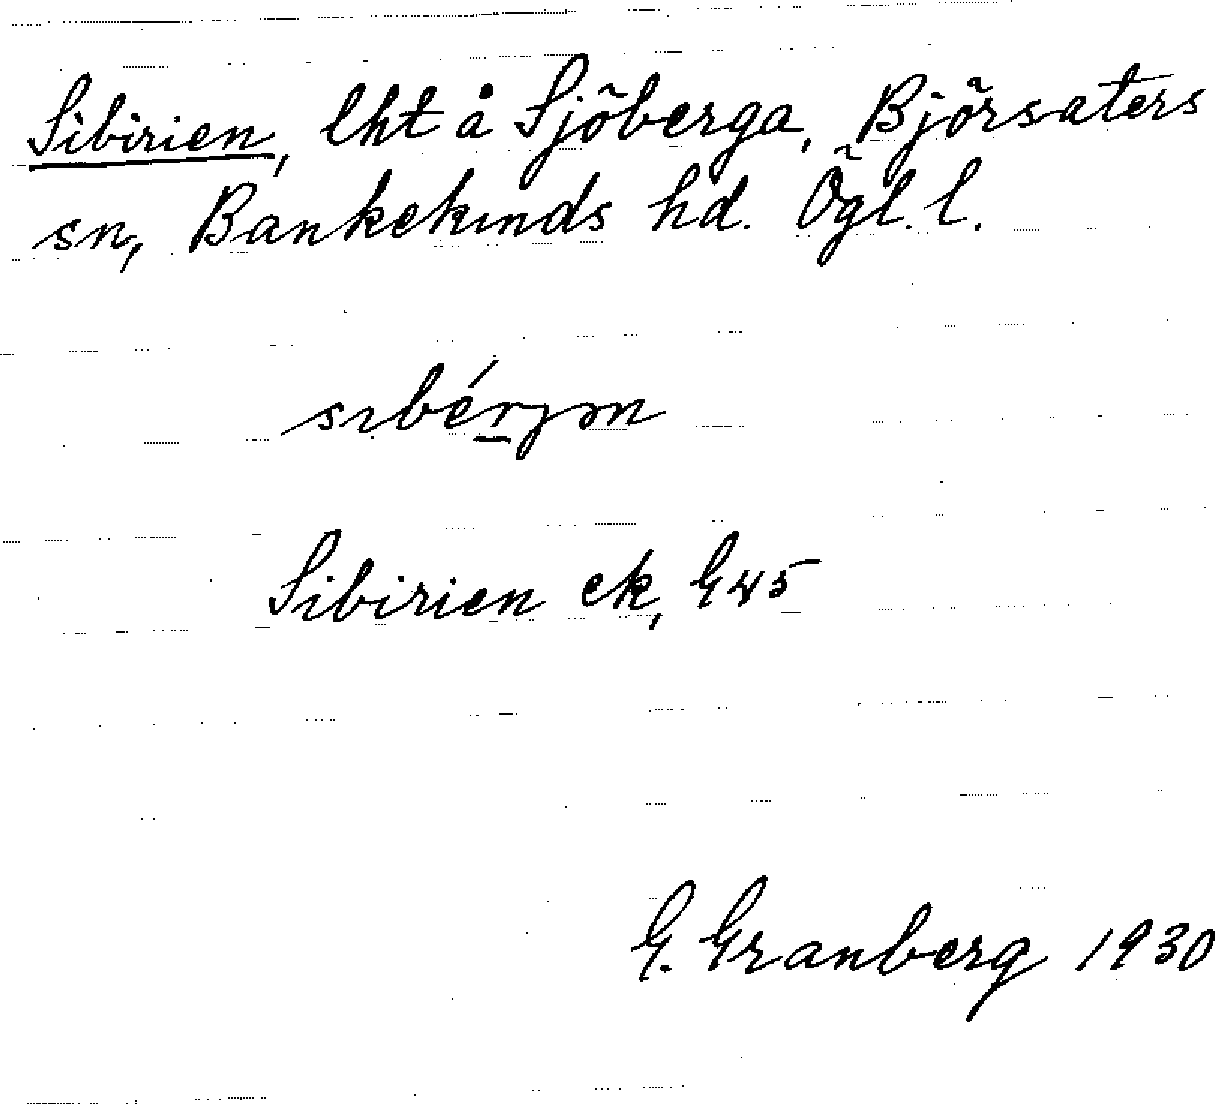 Sibirien, lht å Sjöberga, Björsaters
sn, Bankekinds hd. Ögl. l.
sıbérjən
Sibirien ek, G45
G. Granberg 1930